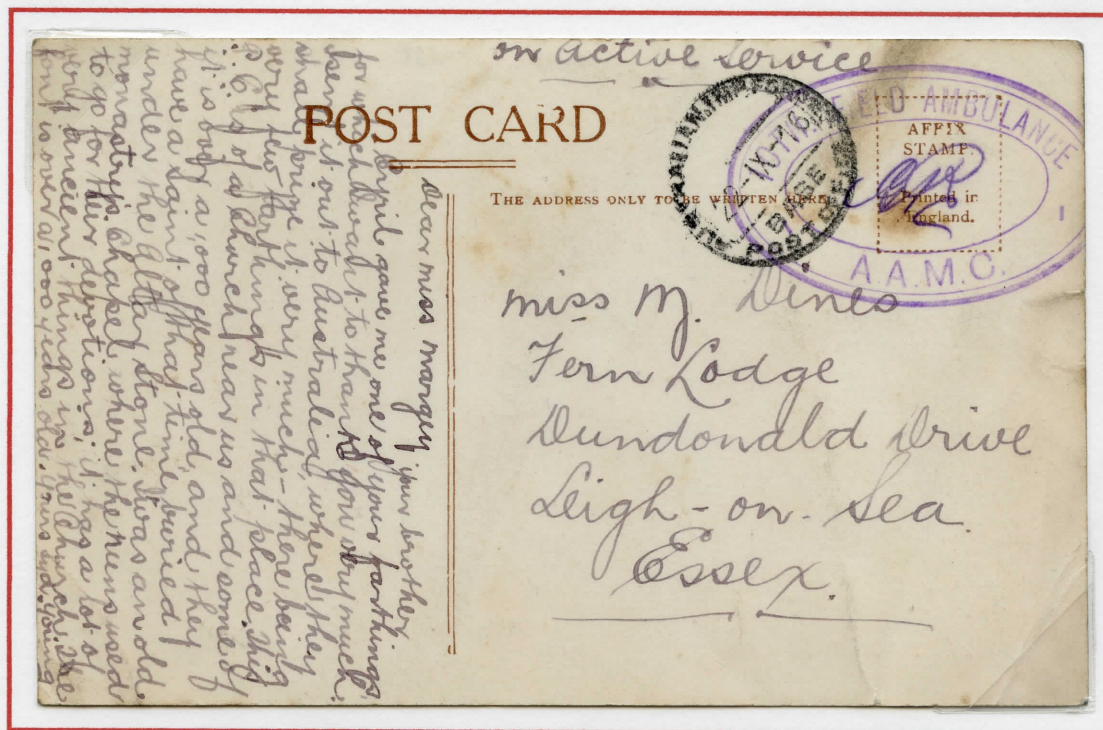 on Active Service
POST CARD
THE ADDRESS ONLY TO BE WRITTEN HERE
AFFIX
STAMP.
Printed in
England.
FIELD AMBULANCE
A.A.M.C.
Miss M. Dines
Fern Lodge
Dundonald Drive
Leigh-on-Sea.
Essex.
Dear Miss Margery your brother
Cyril gave me one of your farthings
for which I want to thank you very much.
send it out to Australia, where they
shall prize it very much - there being
very few farthings in that place. This
is of a Church near us and some of
it is over a 1,000 years old, and they
have a Saint of that time, buried
under the Altar Stone. It was an old
monastry's Chapel where the nuns used
to go for their devotions; it has a lot of
very ancient things in the Church. The
font is over a 1,000 years old. Yours